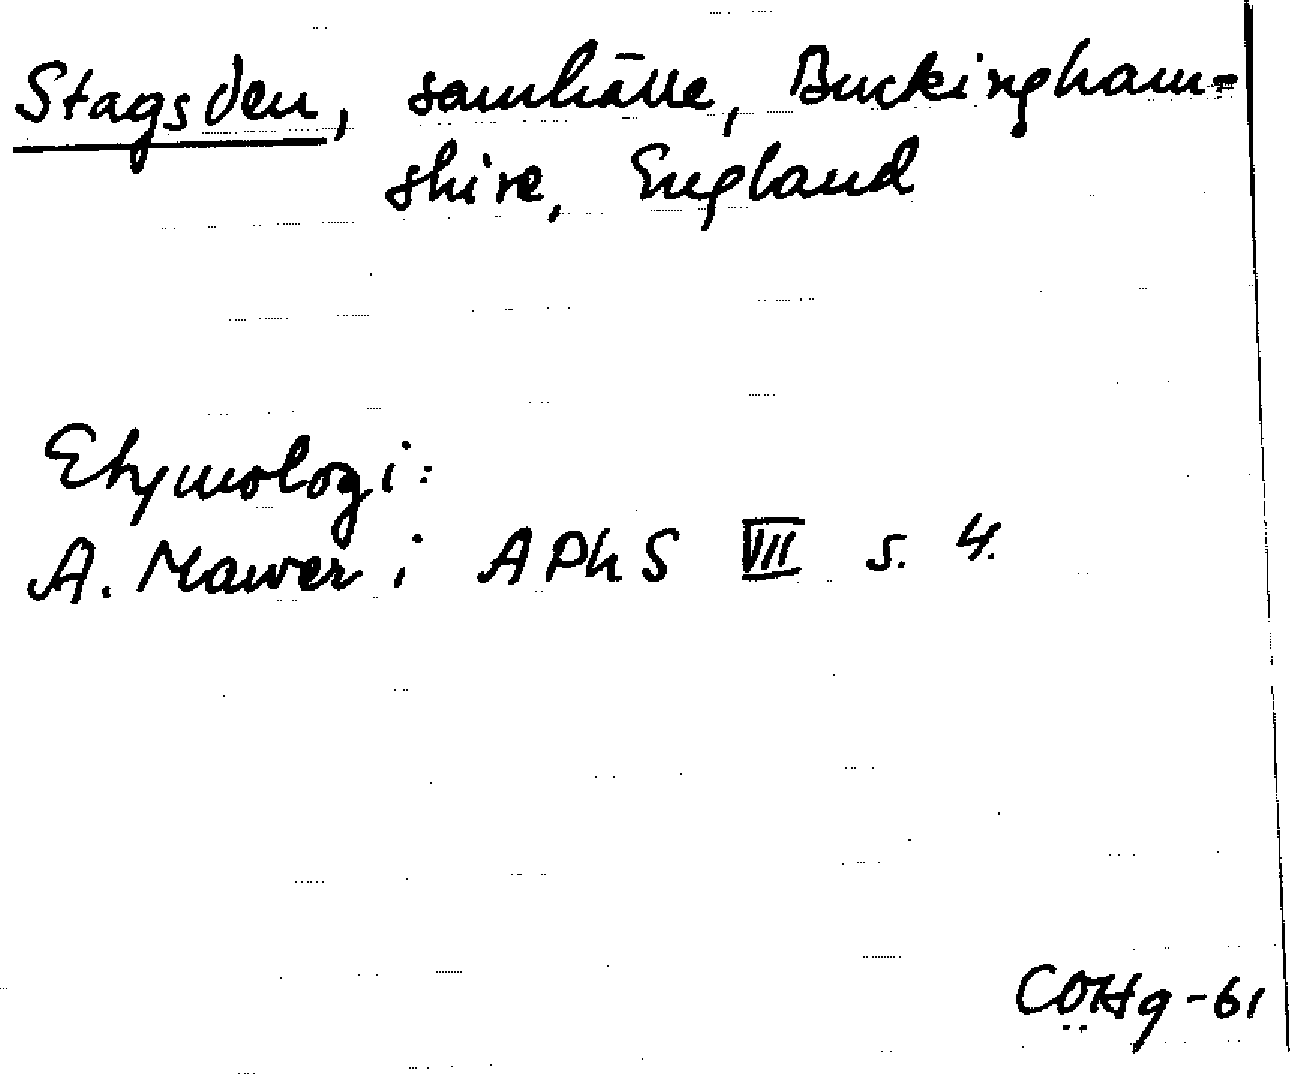 Stagsden, samhälle, Buckingham-
shire, England
Etymologi:
A. Mawer i APhS VII s. 4.
COHg-61